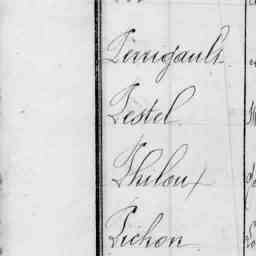 Perrigault
Pestel
Philoux
Pichon